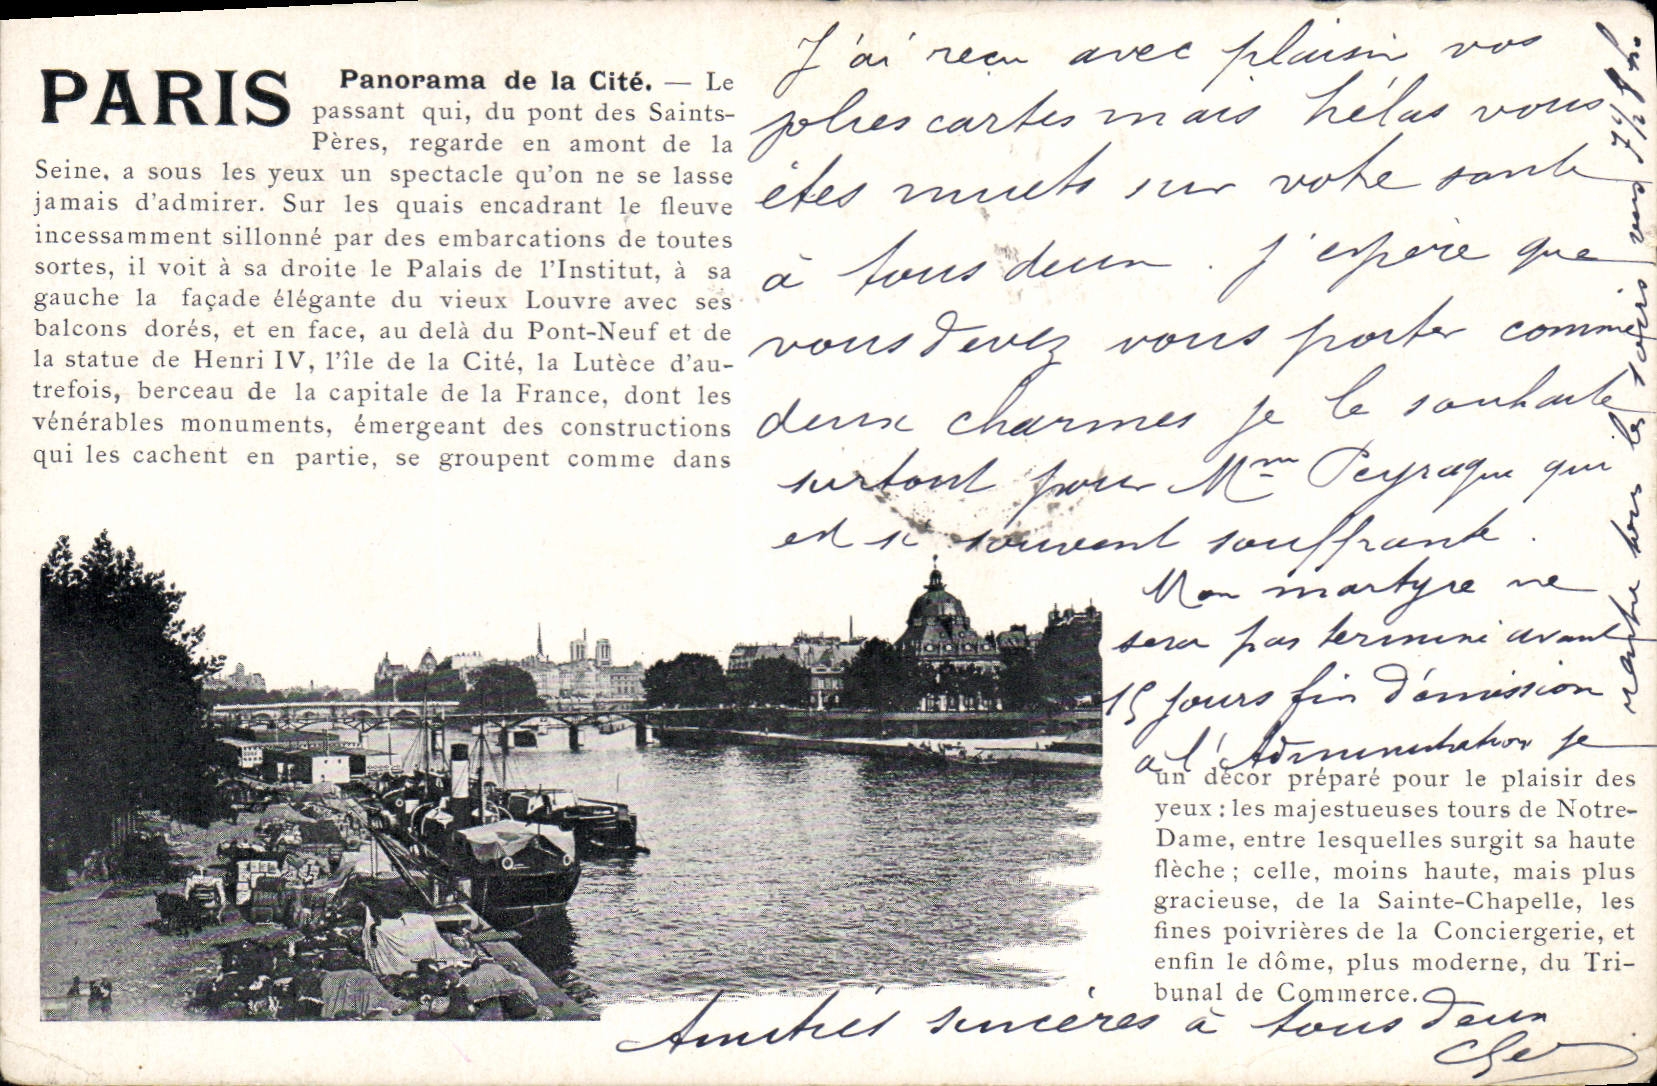 PARIS
Panorama de la Cité. — Le
passant qui, du pont des Saints-
Pères, regarde en amont de la
Seine, a sous les yeux un spectacle qu'on ne se lasse
jamais d'admirer. Sur les quais encadrant le fleuve
incessamment sillonné par des embarcations de toutes
sortes, il voit à sa droite le Palais de l'Institut, à sa
gauche la façade élégante du vieux Louvre avec ses
balcons dorés, et en face, au delà du Pont-Neuf et de
la statue de Henri IV, l'île de la Cité, la Lutèce d'au-
trefois, berceau de la capitale de la France, dont les
vénérables monuments, émergeant des constructions
qui les cachent en partie, se groupent comme dans
un décor préparé pour le plaisir des
yeux : les majestueuses tours de Notre-
Dame, entre lesquelles surgit sa haute
flèche ; celle, moins haute, mais plus
gracieuse, de la Sainte-Chapelle, les
fines poivrières de la Conciergerie, et
enfin le dôme, plus moderne, du Tri-
bunal de Commerce.
J'ai reçu avec plaisir vos
jolies cartes mais hélas vous
êtes muets sur votre santé
à tous deux. J'espère que
vous devez vous porter comme
deux charmes je le souhaite
surtout pour Mme Peyraque qui
est si souvent souffrante.
Mon martyre ne
sera pas terminé avant
15 jours fin d'émission
à l'Administration je
reste tous les soirs vers 7h 1/2 8h
Amitiés sincères à tous deux